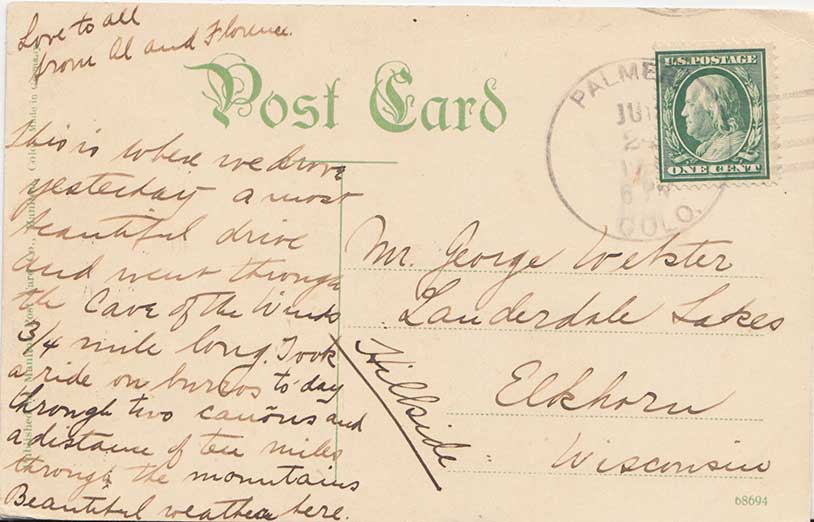 Love to all
from Al and Florence.
Post Card
U.S. POSTAGE
ONE CENT
PALMER
JU
2
6 PM
COLO.
This is where we drove
yesterday a most
beautiful drive
and went through
the Cave of the Winds
3/4 mile long. Took
a ride on burros to day
through two cañons and
a distance of ten miles
through the mountains
Beautiful weather here.
Mr. George Webster
Lauderdale Lakes
Hillside
Elkhorn
Wisconsin
68694